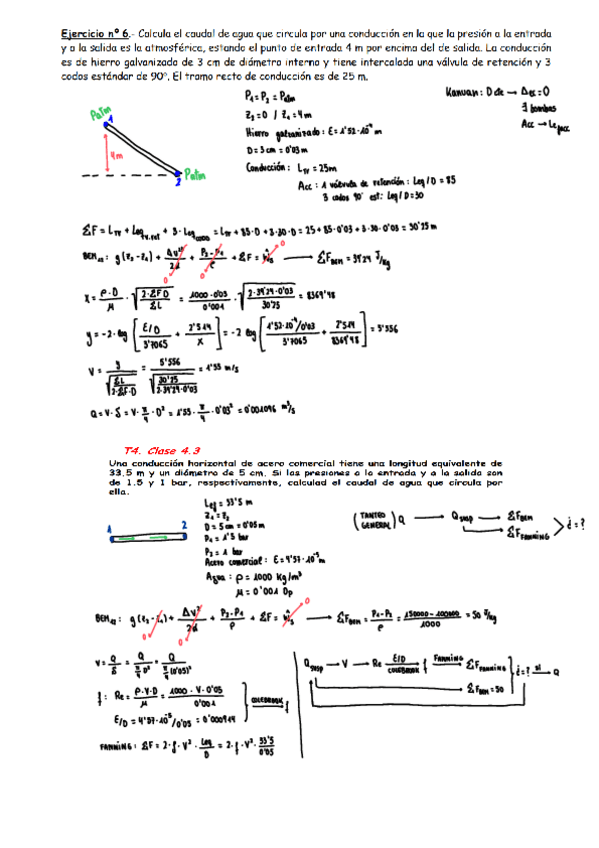 Ejercicio nº 6.- Calcula el caudal de agua que circula por una conducción en la que la presión a la entrada
y a la salida es la atmosférica, estando el punto de entrada 4 m por encima del de salida. La conducción
es de hierro galvanizado de 3 cm de diámetro interno y tiene intercalada una válvula de retención y 3
codos estándar de 90°. El tramo recto de conducción es de 25 m.
P1 = P2 = Patm
Z2 = 0 / Z1 = 4 m
Hierro galvanizado: ε = 1'52·10⁻⁴ m
D = 3 cm = 0'03 m
Conducción: LTr = 25m
Acc: 1 válvula de retención: Leq/D = 85
3 codos 90° est: Leq/D = 30
Karman: D de → Δec = 0
∄ bombas
Acc → Leqacc
Patm
1
4m
2
Patm
ΣF = LTr + Leqv.ret + 3·Leqcodo = LTr + 85·D + 3·30·D = 25 + 85·0'03 + 3·30·0'03 = 30'25 m
BEM12: g(z2-z1) + Δv²/2α + P2-P1/ρ + ΣF = Ŵs → ΣFBEM = 39'24 J/Kg
0 0 0
X = ρ·D/μ · √(2·ΣF·D/ΣL) = 1000·0'03/0'001 · √(2·39'24·0'03/30'25) = 8369'48
y = -2·log[ε/D/3'7065 + 2'514/x] = -2 log[1'52·10⁻⁴/0'03/3'7065 + 2'514/8369'48] = 5'556
V = y/√(ΣL/2·ΣF·D) = 5'556/√(30'25/2·39'24·0'03) = 1'55 m/s
Q = V·S = V·π/4·D² = 1'55·π/4·0'03² = 0'001096 m³/s
T4. Clase 4.3
Una conducción horizontal de acero comercial tiene una longitud equivalente de
33,5 m y un diámetro de 5 cm. Si las presiones a la entrada y a la salida son
de 1.5 y 1 bar, respectivamente, calculad el caudal de agua que circula por
ella.
Leq = 33'5 m
Z1 = Z2
D = 5 cm = 0'05 m
P1 = 1'5 bar
P2 = 1 bar
Acero comercial: ε = 4'57·10⁻⁵ m
Agua: ρ = 1000 Kg/m³
μ = 0'001 Dp
1 2
(TANTEO GENERAL) Q → Qsup → ΣFBEM
ΣFFANNING
¿=?
BEM12: g(z2-z1) + Δv²/2α + P2-P1/ρ + ΣF = Ŵs → ΣFBEM = P1-P2/ρ = 150000-100000/1000 = 50 J/kg
0 0 0
V = Q/S = Q/π/4 D² = Q/π/4 (0'05)²
f: Re = ρ·V·D/μ = 1000·V·0'05/0'001
ε/D = 4'57·10⁻⁵/0'05 = 0'000914
COLEBROOK f
FANNING: ΣF = 2·f·V²·Leq/D = 2·f·V²·33'5/0'05
Qsup → V → Re ε/D COLEBROOK f FANNING ΣFFANNING
ΣFBEM = 50
¿=? sí → Q